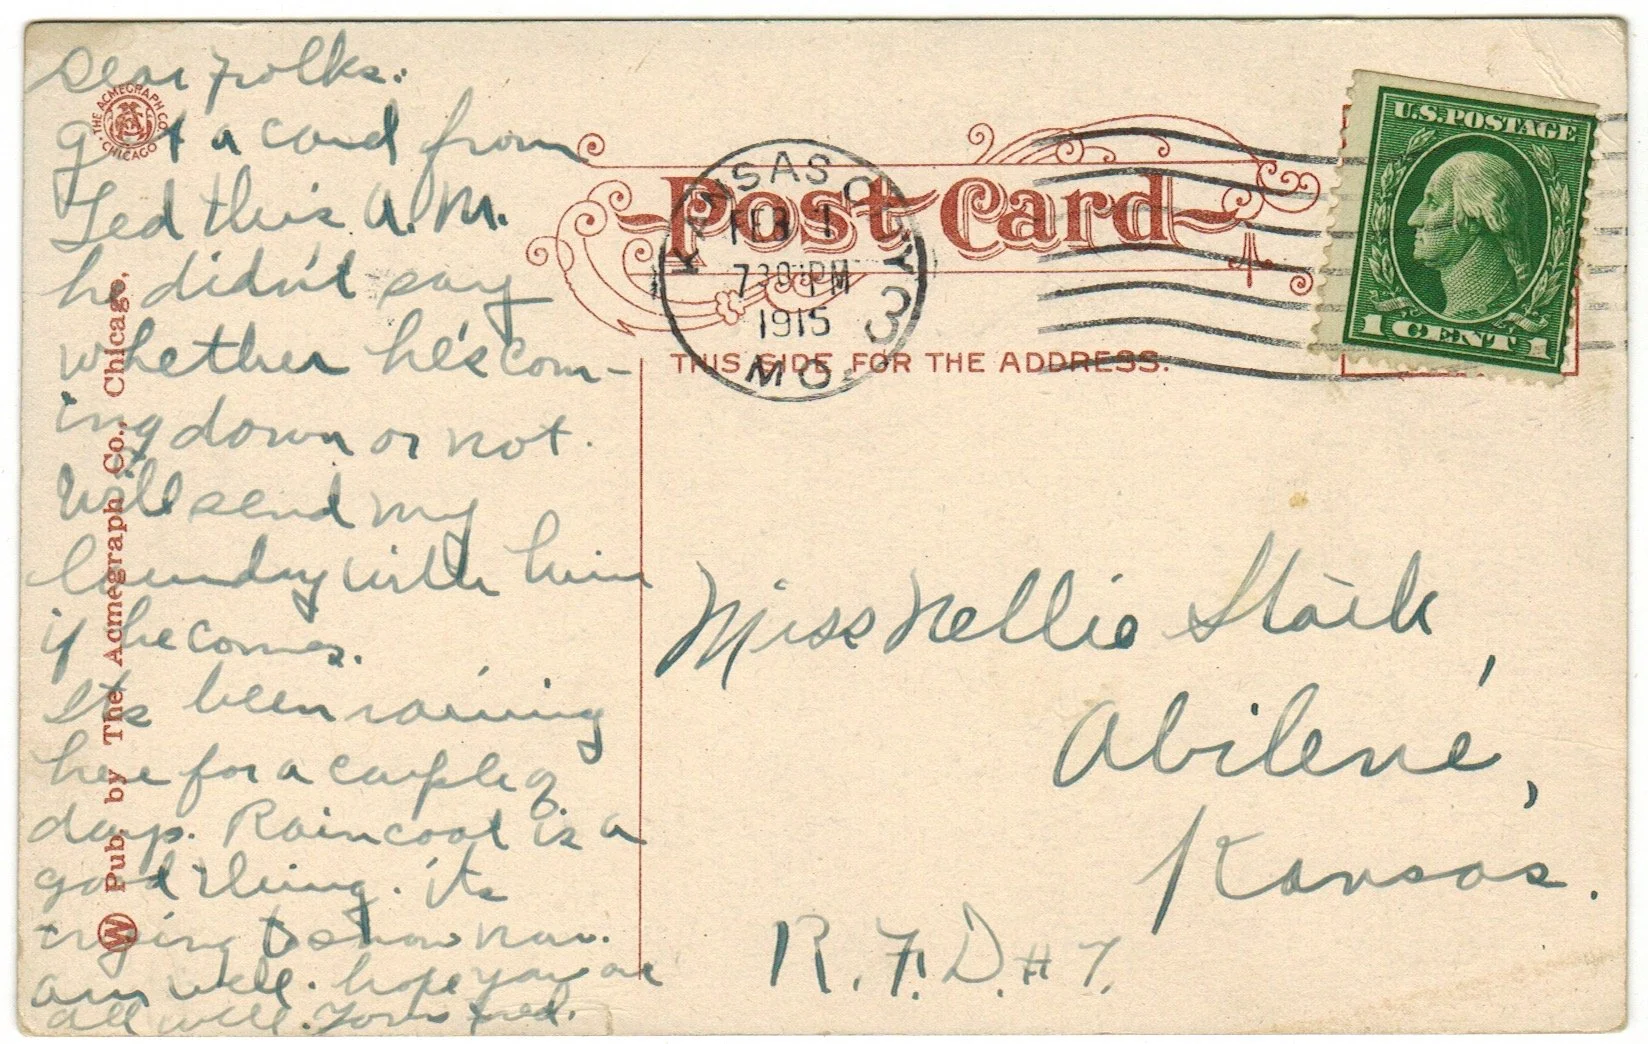 Dear folks:
got a card from
Ted this A.M.
he didn't say
whether he's com-
ing down or not.
Will send my
laundry with him
if he comes.
Its been raining
here for a couple of
days. Raincoat is a
good thing. its
trying to snow now.
am well. hope you are
all well. Yours Fred.
THE ACMEGRAPH CO.
CHICAGO
Pub. by The Acmegraph Co., Chicago.
W
Post Card
THIS SIDE FOR THE ADDRESS.
KANSAS CITY 3
FEB 1
730 PM
1915
MO.
U.S. POSTAGE
1 CENT 1
Miss Nellie
Abilene,
Kansas.
R.F.D. # 7.